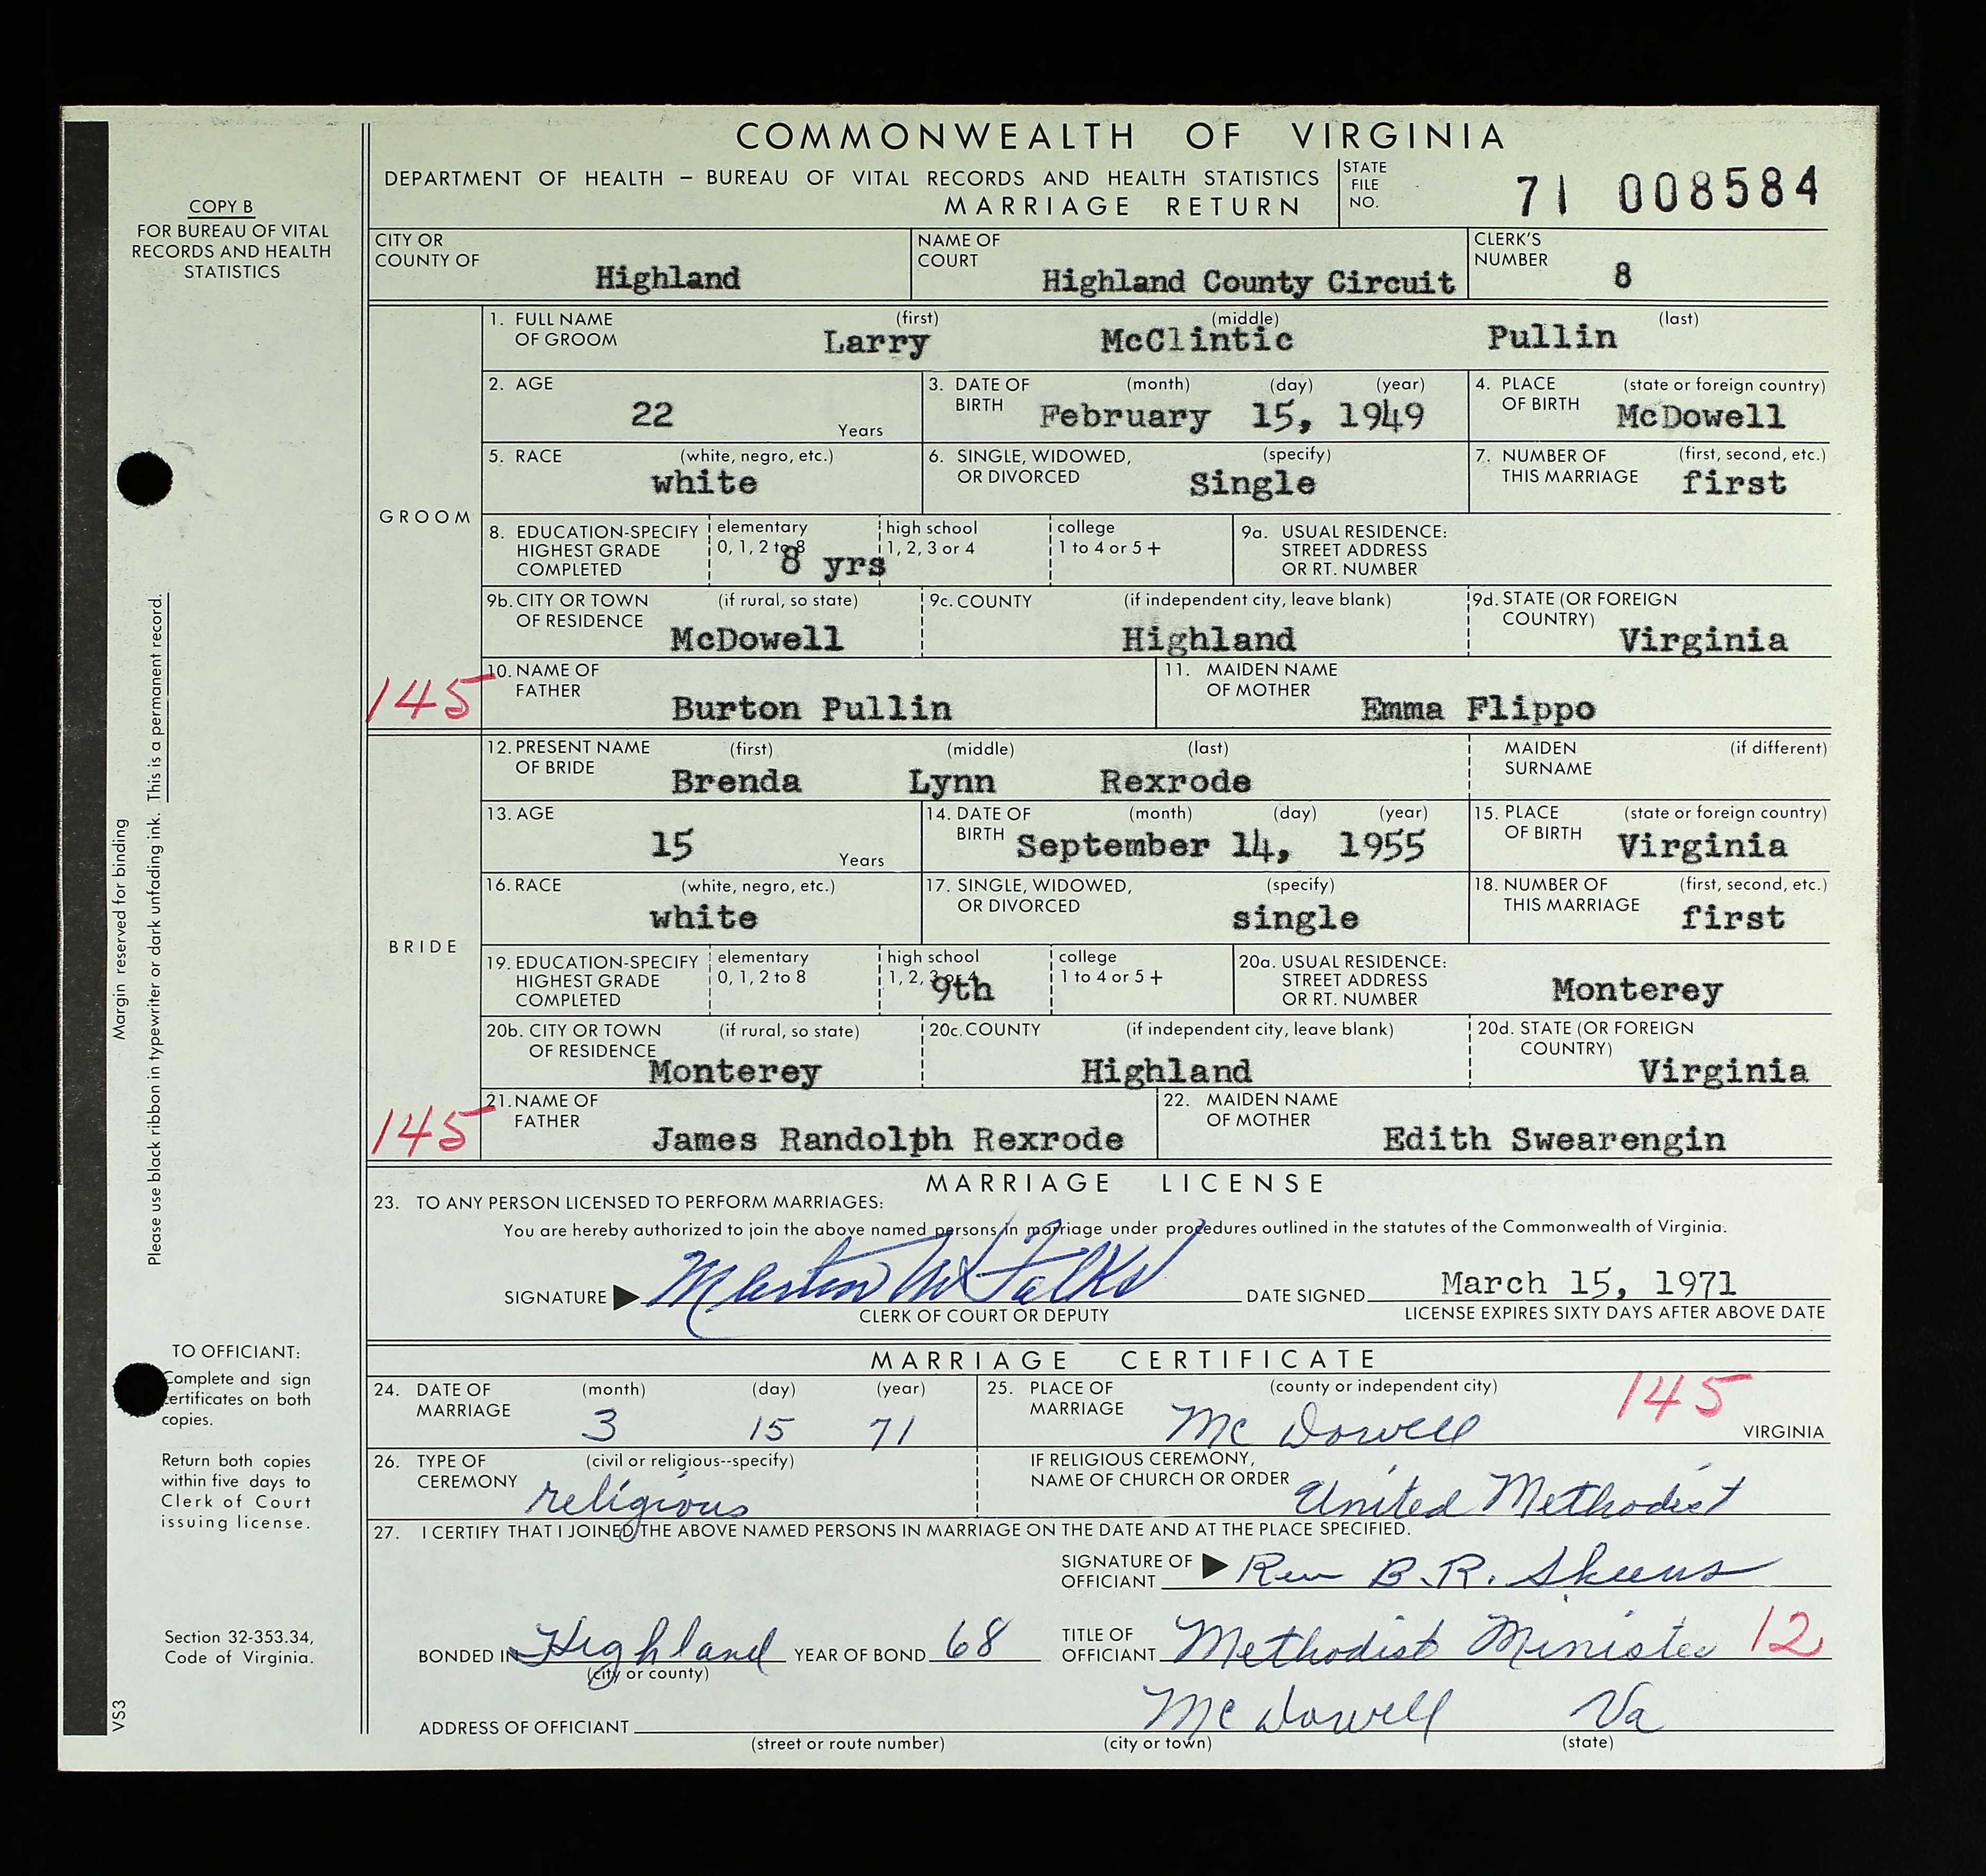 COMMONWEALTH OF VIRGINIA
DEPARTMENT OF HEALTH – BUREAU OF VITAL RECORDS AND HEALTH STATISTICS
MARRIAGE RETURN
STATE FILE NO. 71 008584
COPY B
FOR BUREAU OF VITAL
RECORDS AND HEALTH
STATISTICS
CITY OR COUNTY OF Highland
NAME OF COURT Highland County Circuit
CLERK'S NUMBER 8
GROOM
1. FULL NAME OF GROOM (first) Larry (middle) McClintic (last) Pullin
2. AGE 22 Years
3. DATE OF BIRTH (month) (day) (year) February 15, 1949
4. PLACE OF BIRTH (state or foreign country) McDowell
5. RACE (white, negro, etc.) white
6. SINGLE, WIDOWED, OR DIVORCED (specify) Single
7. NUMBER OF THIS MARRIAGE (first, second, etc.) first
8. EDUCATION-SPECIFY HIGHEST GRADE COMPLETED elementary 0, 1, 2 to 8 8 yrs high school 1, 2, 3 or 4 college 1 to 4 or 5 +
9a. USUAL RESIDENCE: STREET ADDRESS OR RT. NUMBER
9b. CITY OR TOWN OF RESIDENCE (if rural, so state) McDowell
9c. COUNTY (if independent city, leave blank) Highland
9d. STATE (OR FOREIGN COUNTRY) Virginia
145
10. NAME OF FATHER Burton Pullin
11. MAIDEN NAME OF MOTHER Emma Flippo
BRIDE
12. PRESENT NAME OF BRIDE (first) Brenda (middle) Lynn (last) Rexrode
MAIDEN SURNAME (if different)
13. AGE 15 Years
14. DATE OF BIRTH (month) (day) (year) September 14, 1955
15. PLACE OF BIRTH (state or foreign country) Virginia
16. RACE (white, negro, etc.) white
17. SINGLE, WIDOWED, OR DIVORCED (specify) single
18. NUMBER OF THIS MARRIAGE (first, second, etc.) first
19. EDUCATION-SPECIFY HIGHEST GRADE COMPLETED elementary 0, 1, 2 to 8 high school 1, 2, 3 or 4 9th college 1 to 4 or 5 +
20a. USUAL RESIDENCE: STREET ADDRESS OR RT. NUMBER Monterey
20b. CITY OR TOWN OF RESIDENCE (if rural, so state) Monterey
20c. COUNTY (if independent city, leave blank) Highland
20d. STATE (OR FOREIGN COUNTRY) Virginia
145
21. NAME OF FATHER James Randolph Rexrode
22. MAIDEN NAME OF MOTHER Edith Swearengin
MARRIAGE LICENSE
23. TO ANY PERSON LICENSED TO PERFORM MARRIAGES:
You are hereby authorized to join the above named persons in marriage under procedures outlined in the statutes of the Commonwealth of Virginia.
SIGNATURE
CLERK OF COURT OR DEPUTY
DATE SIGNED March 15, 1971
LICENSE EXPIRES SIXTY DAYS AFTER ABOVE DATE
MARRIAGE CERTIFICATE
24. DATE OF MARRIAGE (month) 3 (day) 15 (year) 71
25. PLACE OF MARRIAGE (county or independent city) Mc Dowell 145 VIRGINIA
26. TYPE OF CEREMONY (civil or religious--specify) religious
IF RELIGIOUS CEREMONY, NAME OF CHURCH OR ORDER United Methodist
27. I CERTIFY THAT I JOINED THE ABOVE NAMED PERSONS IN MARRIAGE ON THE DATE AND AT THE PLACE SPECIFIED.
SIGNATURE OF OFFICIANT Rev B.R. Skeens
BONDED IN Highland (city or county) YEAR OF BOND 68
TITLE OF OFFICIANT Methodist Minister 12
ADDRESS OF OFFICIANT Mc Dowell Va
(street or route number) (city or town) (state)
Margin reserved for binding
Please use black ribbon in typewriter or dark unfading ink. This is a permanent record.
TO OFFICIANT:
Complete and sign
certificates on both
copies.
Return both copies
within five days to
Clerk of Court
issuing license.
Section 32-353.34,
Code of Virginia.
VS3